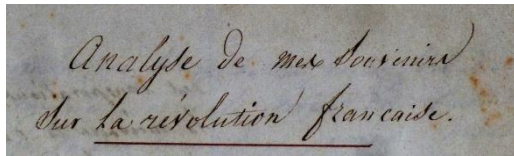 Analyse de mes Souvenirs
Sur la révolution francaise.